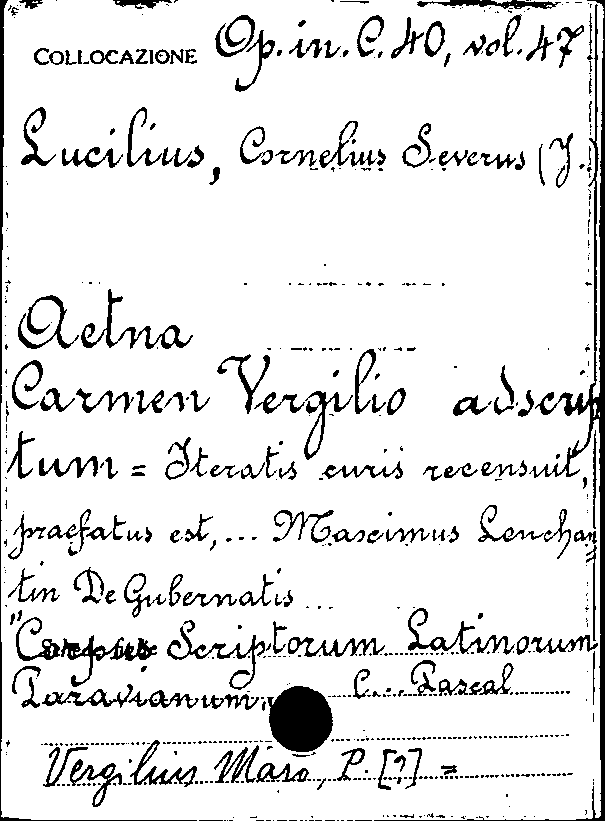 COLLOCAZIONE Op. in. C. 40, vol. 47
Lucilius, Cornelius Severus (J.)
Aetna
Carmen Vergilio adscrip
tum = Iteratis curis recensuit,
praefatus est,... Maximus Lenchan
tin De Gubernatis ...
"Corpus Scriptorum Latinorum
Paravianum. C... Pascal
Vergilius Maro, P. [?] =